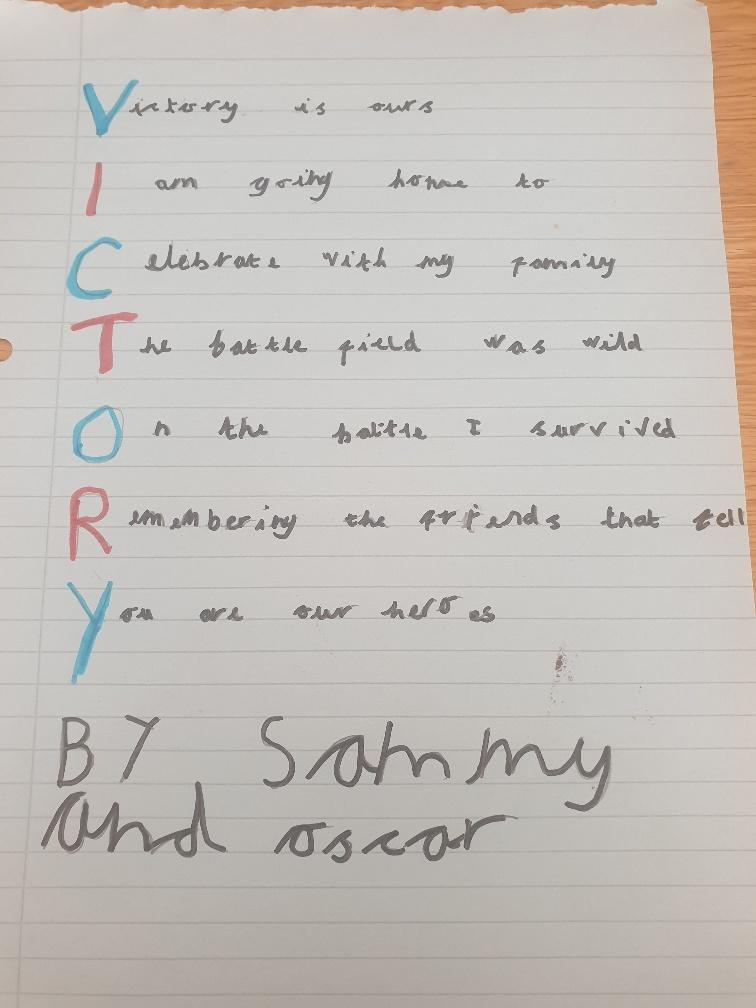 Victory is ours
I am going home to
Celebrate with my family
The battle field was wild
On the battle I survived
Remembering the friends that fell
You are our heroes
BY Sammy
and oscar